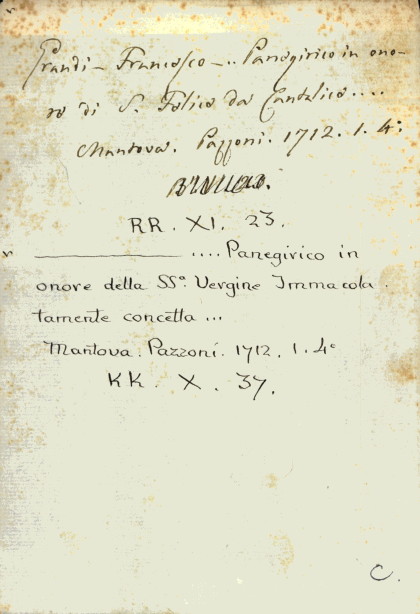 Grandi - Francesco - .. Panegirico in ono-
re di S. Felice da Cantalice....
Mantova. Pazzoni. 1712. 1. 4º
RR. XI. 23.
.... Panegirico in
onore della SSª. Vergine Immacola.
tamente concetta ...
Mantova. Pazzoni. 1712. 1. 4º
KK. X. 37.
C.